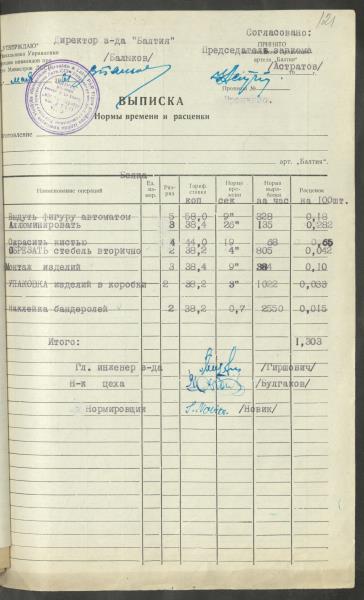 121
"УТВЕРЖДАЮ" Директор з-да "Балтия" Согласовано:
ПРИНЯТО
/Балыков/ Председатель завкома
артели "Балтия"
/Астратов/
Протокол №
ВЫПИСКА
Нормы времени и расценки
арт. „Балтия".
Наименование операций Ед. измер. Разряд Тариф. ставки коп Норма времени сек Норма выработки за час Расценок на 100шт.
Выдуть фигуру автоматом 5 58,0 9" 328 0,18
Аллюминировать 3 38,4 26" 135 0,282
Окрасить кистью 4 44,0 19 68 0,65
ОБРЕЗАТЬ стебель вторично 2 38,2 4" 805 0,042
Монтаж изделий 3 38,4 9" 384 0,10
УПАКОВКА изделий в коробки 2 38,2 3" 1022 0,033
Наклейка бандеролей 2 38,2 0,7 2550 0,015
Итого: 1,303
Гл. инженер з-да /Гиршович/
Н-к цеха /Булгаков/
Нормировщик /Новик/